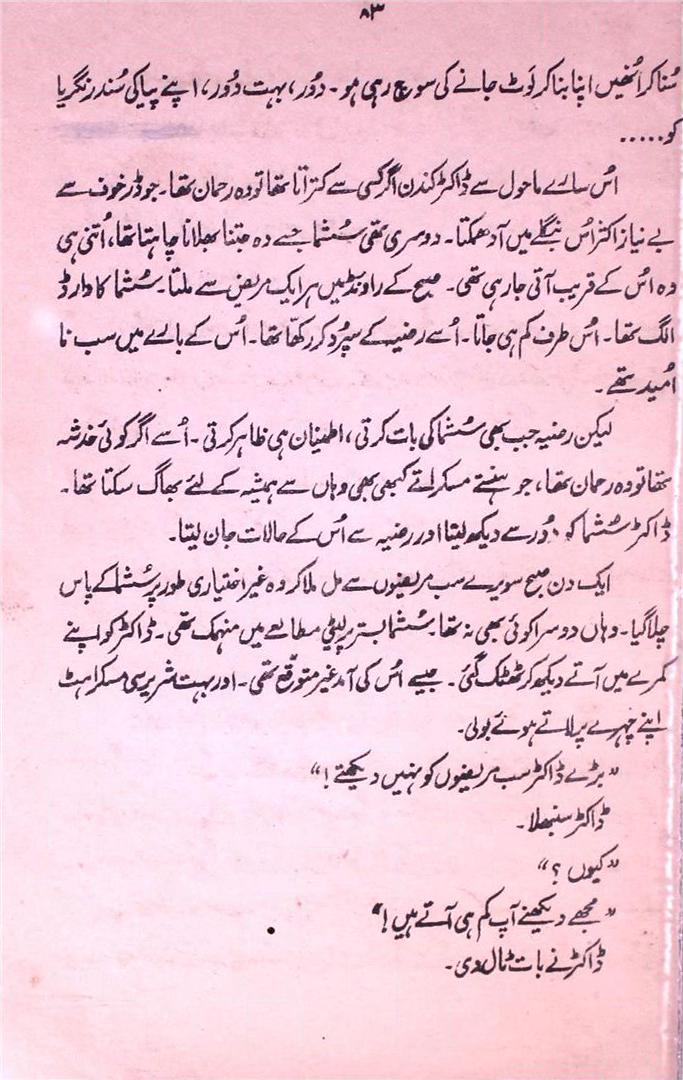 ۸۳
سُنا کر اُنھیں اپنا بنا کر لَوٹ جانے کی سوچ رہی ہو۔ دُور، بہت دُور، اپنے پیا کی سُندر نگریا
کو.....
اُس سارے ماحول سے ڈاکٹر کندن اگر کسی سے کتراتا تھا تو وہ رحمان تھا۔ جو ڈر خوف سے
بے نیاز اکثر اُس بنگلے میں آ دھمکتا۔ دوسری تھی سُشما جسے وہ جتنا بھلانا چاہتا تھا، اُتنی ہی
وہ اُس کے قریب آتی جا رہی تھی۔ صبح کے راونڈ میں ہر ایک مریض سے ملتا۔ سُشما کا وارڈ
الگ تھا۔ اُس طرف کم ہی جاتا۔ اُسے رضیہ کے سپُرد کر رکھا تھا۔ اُس کے بارے میں سب نا
اُمید تھے۔
لیکن رضیہ جب بھی سُشما کی بات کرتی، اطمینان ہی ظاہر کرتی۔ اُسے اگر کوئی خدشہ
تھا تو وہ رحمان تھا، جو ہنستے مسکراتے کبھی بھی وہاں سے ہمیشہ کے لئے بھاگ سکتا تھا۔
ڈاکٹر سُشما کو دُور سے دیکھ لیتا اور رضیہ سے اُس کے حالات جان لیتا۔
ایک دن صبح سویرے سب مریضوں سے مل ملا کر وہ غیر اختیاری طور پر سُشما کے پاس
چلا گیا۔ وہاں دوسرا کوئی بھی نہ تھا۔ سُشما بستر پر لیٹی مطالعے میں منہمک تھی۔ ڈاکٹر کو اپنے
کمرے میں آتے دیکھ کر ٹھٹک گئی۔ جیسے اُس کی آمد غیر متوقّع تھی۔ اور بہت شریر سی مسکراہٹ
اپنے چہرے پر لاتے ہوئے بولی۔
”بڑے ڈاکٹر سب مریضوں کو نہیں دیکھتے!“
ڈاکٹر سنبھلا۔
”کیوں؟“
”مجھے دیکھنے آپ کم ہی آتے ہیں!“
ڈاکٹر نے بات ٹال دی۔